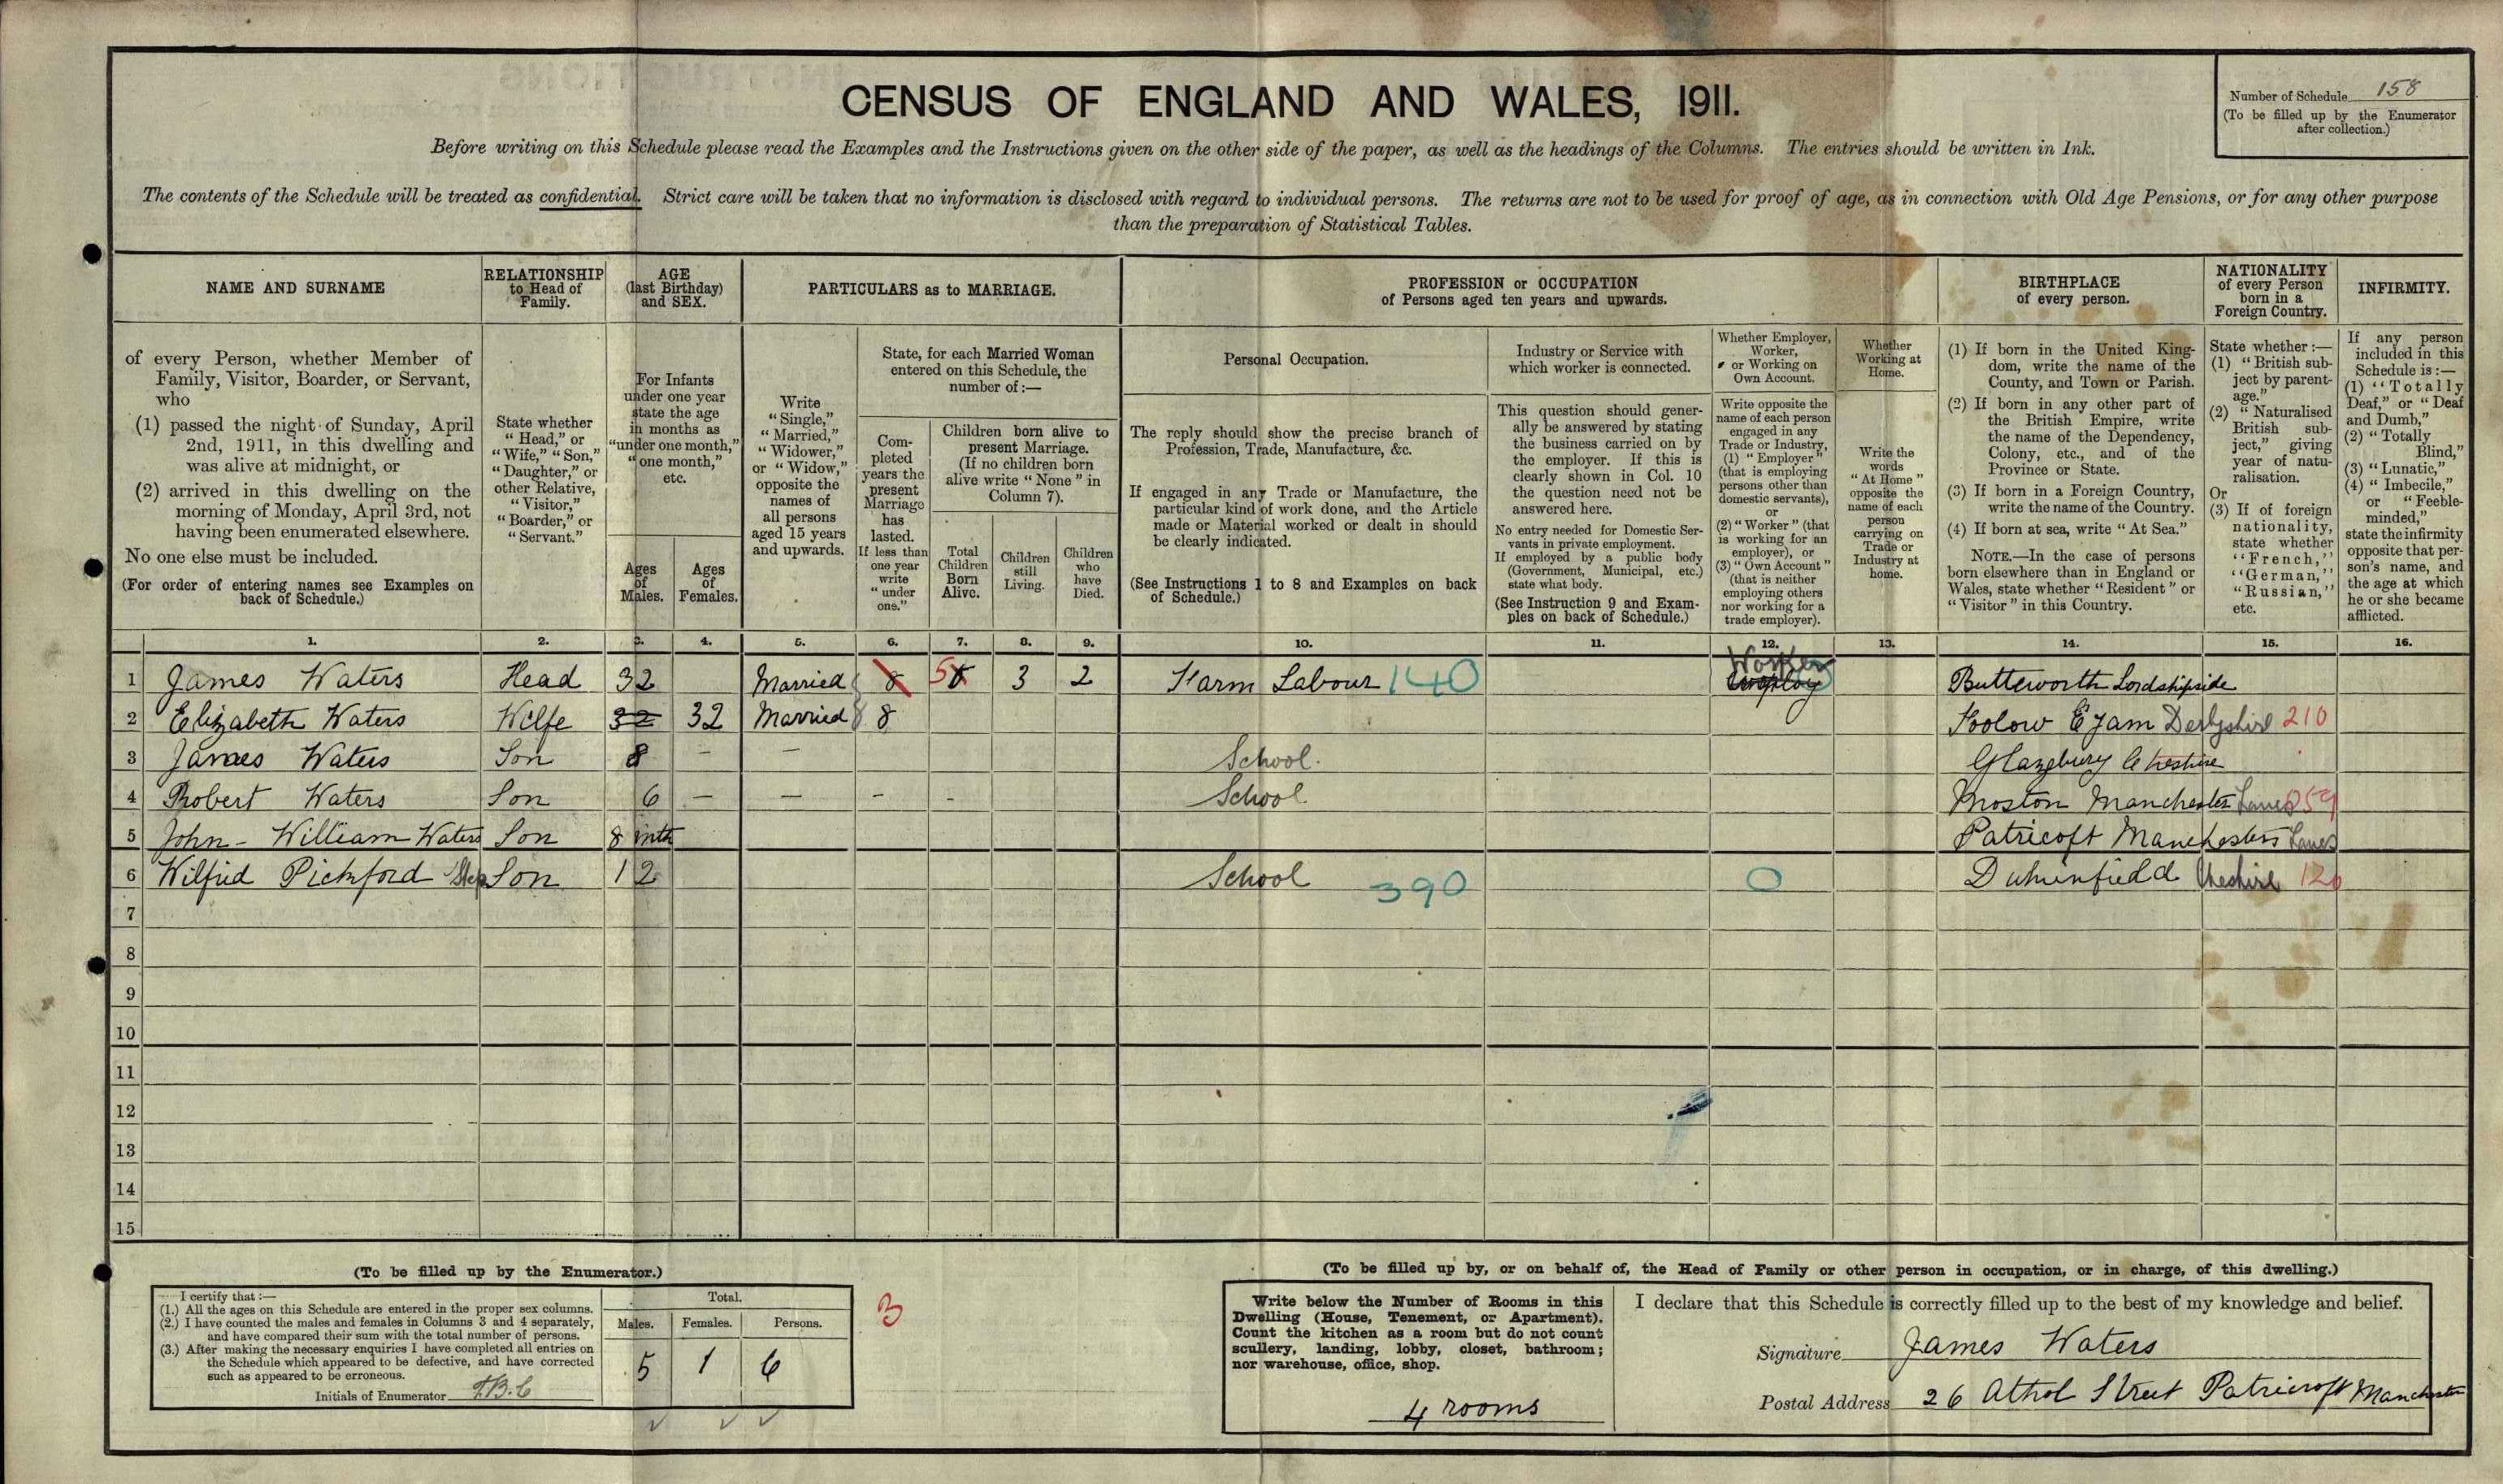 CENSUS OF ENGLAND AND WALES, 1911.
Number of Schedule 158
(To be filled up by the Enumerator
after collection.)
Before writing on this Schedule please read the Examples and the Instructions given on the other side of the paper, as well as the headings of the Columns. The entries should be written in Ink.
The contents of the Schedule will be treated as confidential. Strict care will be taken that no information is disclosed with regard to individual persons. The returns are not to be used for proof of age, as in connection with Old Age Pensions, or for any other purpose
than the preparation of Statistical Tables.
NAME AND SURNAME
of every Person, whether Member of
Family, Visitor, Boarder, or Servant,
who
(1) passed the night of Sunday, April
2nd, 1911, in this dwelling and
was alive at midnight, or
(2) arrived in this dwelling on the
morning of Monday, April 3rd, not
having been enumerated elsewhere.
No one else must be included.
(For order of entering names see Examples on
back of Schedule.)
RELATIONSHIP
to Head of
Family.
State whether
"Head," or
"Wife," "Son,"
"Daughter," or
other Relative,
"Visitor,"
"Boarder," or
"Servant."
AGE
(last Birthday)
and SEX.
For Infants
under one year
state the age
in months as
"under one month,"
"one month,"
etc.
Ages
of
Males.
Ages
of
Females.
PARTICULARS as to MARRIAGE.
Write
"Single,"
"Married,"
"Widower,"
or "Widow,"
opposite the
names of
all persons
aged 15 years
and upwards.
State, for each Married Woman
entered on this Schedule, the
number of:—
Com-
pleted
years the
present
Marriage
has
lasted.
If less than
one year
write
"under
one."
Children born alive to
present Marriage.
(If no children born
alive write "None" in
Column 7).
Total
Children
Born
Alive.
Children
still
Living.
Children
who
have
Died.
PROFESSION or OCCUPATION
of Persons aged ten years and upwards.
Personal Occupation.
The reply should show the precise branch of
Profession, Trade, Manufacture, &c.
If engaged in any Trade or Manufacture, the
particular kind of work done, and the Article
made or Material worked or dealt in should
be clearly indicated.
(See Instructions 1 to 8 and Examples on back
of Schedule.)
Industry or Service with
which worker is connected.
This question should gener-
ally be answered by stating
the business carried on by
the employer. If this is
clearly shown in Col. 10
the question need not be
answered here.
No entry needed for Domestic Ser-
vants in private employment.
If employed by a public body
(Government, Municipal, etc.)
state what body.
(See Instruction 9 and Exam-
ples on back of Schedule.)
Whether Employer,
Worker,
or Working on
Own Account.
Write opposite the
name of each person
engaged in any
Trade or Industry,
(1) "Employer"
(that is employing
persons other than
domestic servants),
or
(2) "Worker" (that
is working for an
employer), or
(3) "Own Account"
(that is neither
employing others
nor working for a
trade employer).
Whether
Working at
Home.
Write the
words
"At Home"
opposite the
name of each
person
carrying on
Trade or
Industry at
home.
BIRTHPLACE
of every person.
(1) If born in the United King-
dom, write the name of the
County, and Town or Parish.
(2) If born in any other part of
the British Empire, write
the name of the Dependency,
Colony, etc., and of the
Province or State.
(3) If born in a Foreign Country,
write the name of the Country.
(4) If born at sea, write "At Sea."
NOTE.—In the case of persons
born elsewhere than in England or
Wales, state whether "Resident" or
"Visitor" in this Country.
NATIONALITY
of every Person
born in a
Foreign Country.
State whether:—
(1) "British sub-
ject by parent-
age."
(2) "Naturalised
British sub-
ject," giving
year of natu-
ralisation.
Or
(3) If of foreign
nationality,
state whether
"French,"
"German,"
"Russian,"
etc.
INFIRMITY.
If any person
included in this
Schedule is:—
(1) "Totally
Deaf," or "Deaf
and Dumb,"
(2) "Totally
Blind,"
(3) "Lunatic,"
(4) "Imbecile,"
or "Feeble-
minded,"
state the infirmity
opposite that per-
son's name, and
the age at which
he or she became
afflicted.
1. 2. 3. 4. 5. 6. 7. 8. 9. 10. 11. 12. 13. 14. 15. 16.
1 James Waters Head 32 Married 8 5 3 2 Farm Labour 140 Worker Butterworth Lordshipside
2 Elizabeth Waters Wife 32 32 Married 8 Foolow Eyam Derbyshire 210
3 James Waters Son 8 – – School. Glazebury Cheshire
4 Robert Waters Son 6 – – – – School Moston Manchester Lancs 259
5 John - William Waters Son 8 mth Patricoft Manchester Lancs
6 Wilfrid Pickford Step Son 12 School 390 0 Dukinfield Cheshire 120
7
8
9
10
11
12
13
14
15
(To be filled up by the Enumerator.)
I certify that:—
(1.) All the ages on this Schedule are entered in the proper sex columns.
(2.) I have counted the males and females in Columns 3 and 4 separately,
and have compared their sum with the total number of persons.
(3.) After making the necessary enquiries I have completed all entries on
the Schedule which appeared to be defective, and have corrected
such as appeared to be erroneous.
Initials of Enumerator
Total.
Males. Females. Persons.
5 1 6
3
(To be filled up by, or on behalf of, the Head of Family or other person in occupation, or in charge, of this dwelling.)
Write below the Number of Rooms in this
Dwelling (House, Tenement, or Apartment).
Count the kitchen as a room but do not count
scullery, landing, lobby, closet, bathroom;
nor warehouse, office, shop.
4 rooms
I declare that this Schedule is correctly filled up to the best of my knowledge and belief.
Signature James Waters
Postal Address 26 Athol Street Patricroft Manchester